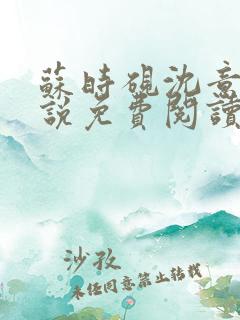 蘇時硯沈意
說免費閱讀
沙孜
未经同意禁止转载